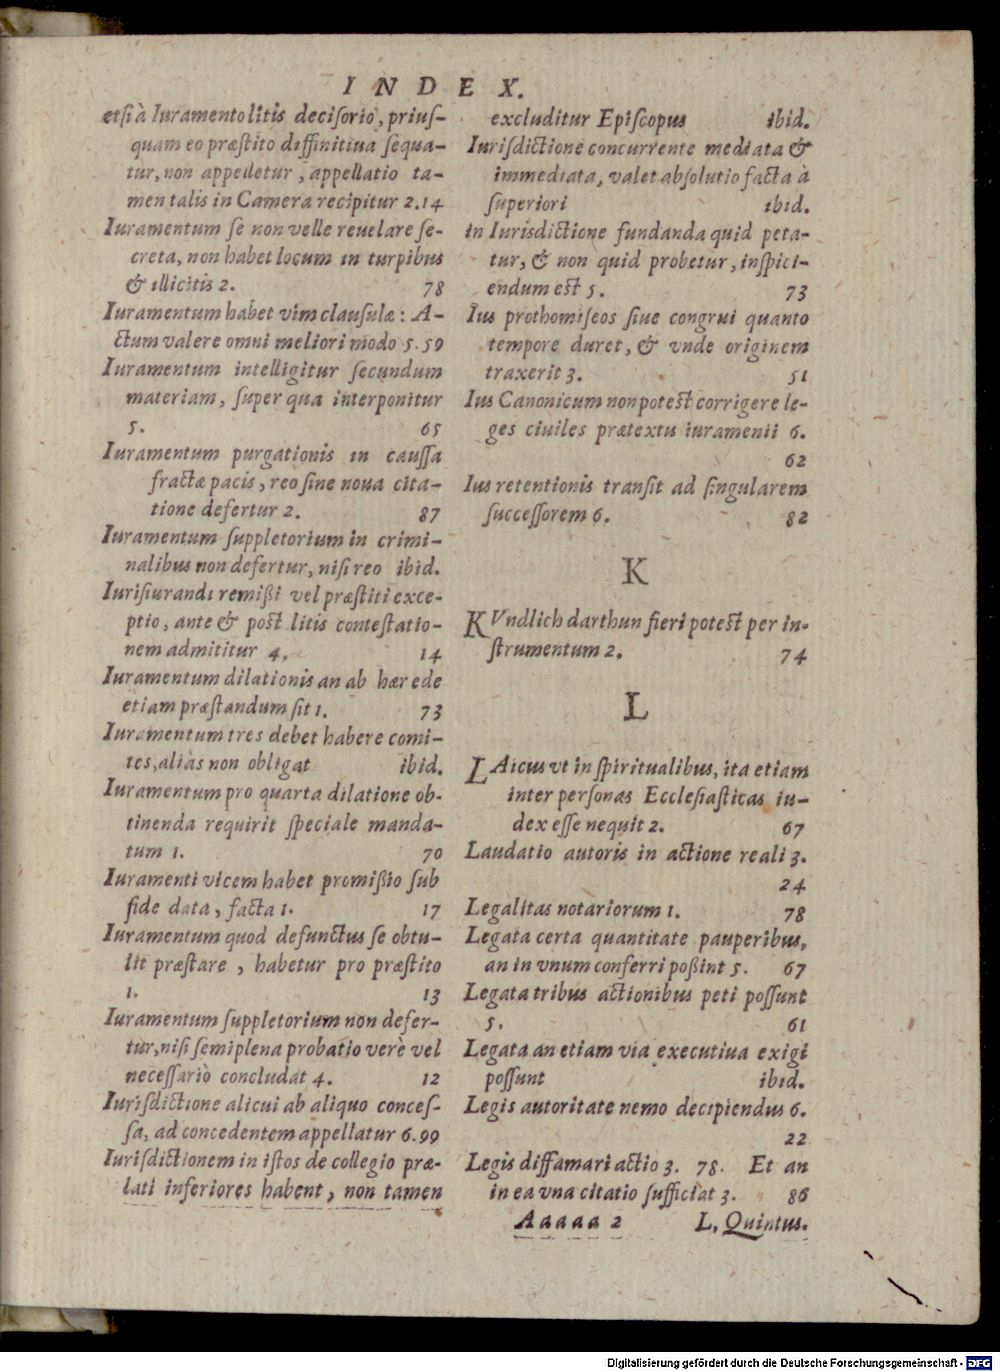 INDEX.
etſi à Iuramento litis deciſorio, priuſ-
quam eo præſtito diffinitiua ſequa-
tur, non appelletur, appellatio ta-
men talis in Camera recipitur 2.14
Iuramentum ſe non velle reuelare ſe-
creta, non habet locum in turpibus
& illicitis 2. 78
Iuramentum habet vim clauſulæ: A-
ctum valere omni meliori modo 5.59
Iuramentum intelligitur ſecundum
materiam, ſuper qua interponitur
5. 65
Iuramentum purgationis in cauſſa
fractæ pacis, reo ſine noua cita-
tione defertur 2. 87
Iuramentum ſuppletorium in crimi-
nalibus non defertur, niſi reo ibid.
Iuriſiurandi remißi vel præſtiti exce-
ptio, ante & poſt litis conteſtatio-
nem admititur 4. 14
Iuramentum dilationis an ab hærede
etiam præſtandum ſit 1. 73
Iuramentum tres debet habere comi-
tes, aliàs non obligat ibid.
Iuramentum pro quarta dilatione ob-
tinenda requirit ſpeciale manda-
tum 1. 70
Iuramenti vicem habet promißio ſub
fide data, facta 1. 17
Iuramentum quod defunctus ſe obtu-
lit præſtare, habetur pro præſtito
1. 13
Iuramentum ſuppletorium non defer-
tur, niſi ſemiplena probatio verè vel
neceſſariò concludat 4. 12
Iuriſdictione alicui ab aliquo conceſ-
ſa, ad concedentem appellatur 6.99
Iuriſdictionem in iſtos de collegio præ-
lati inferiores habent, non tamen
excluditur Epiſcopus ibid.
Iuriſdictione concurrente mediata &
immediata, valet abſolutio facta à
ſuperiori ibid.
in Iurisdictione fundanda quid peta-
tur, & non quid probetur, inſpici-
endum eſt 5. 73
Ius prothomiſeos ſiue congrui quanto
tempore duret, & vnde originem
traxerit 3. 51
Ius Canonicum non poteſt corrigere le-
ges ciuiles prætextu iuramenii 6.
62
Ius retentionis tranſit ad ſingularem
ſucceſſorem 6. 82
K
KVndlich darthun fieri poteſt per in-
ſtrumentum 2. 74
L
LAicus vt in ſpiritualibus, ita etiam
inter perſonas Eccleſiaſticas iu-
dex eſſe nequit 2. 67
Laudatio autoris in actione reali 3.
24
Legalitas notariorum 1. 78
Legata certa quantitate pauperibus,
an in vnum conferri poßint 5. 67
Legata tribus actionibus peti poſſunt
5. 61
Legata an etiam via executiua exigi
poſſunt ibid.
Legis autoritate nemo decipiendus 6.
22
Legis diffamari actio 3. 78. Et an
in ea vna citatio ſufficiat 3. 86
Aaaaa 2 L. Quintus.
Digitalisierung gefördert durch die Deutsche Forschungsgemeinschaft - DFG